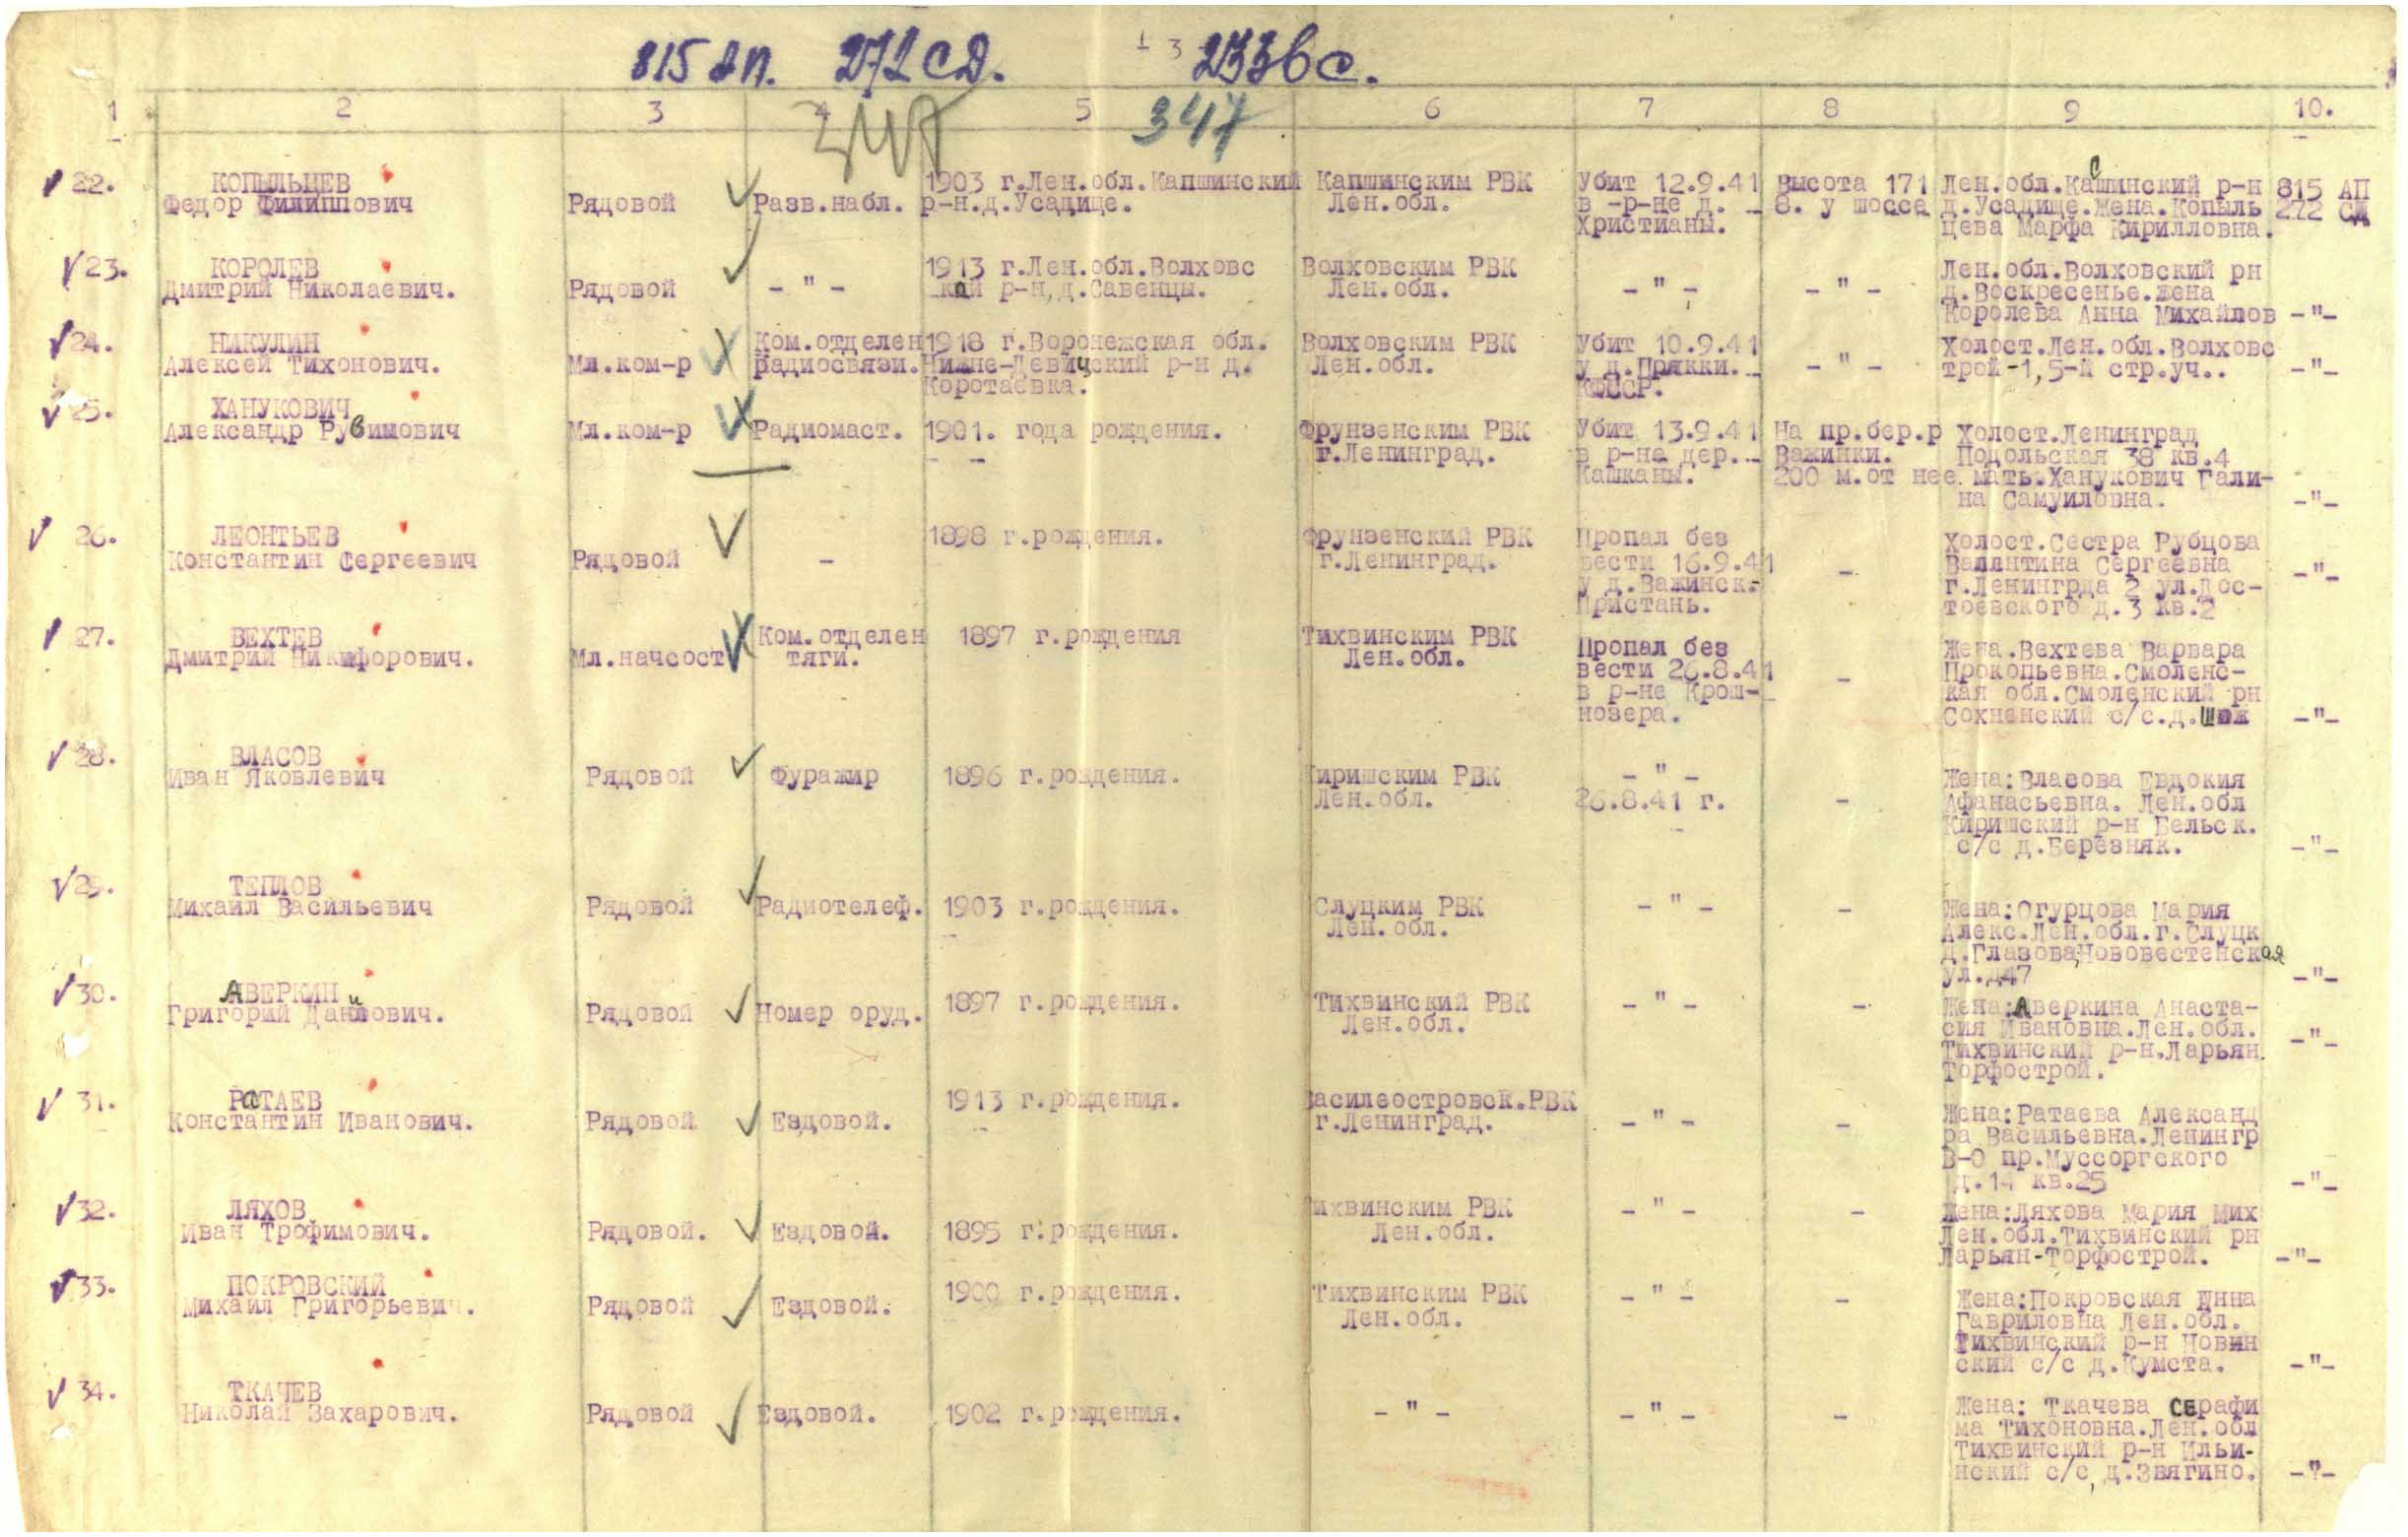 815 ап. 272 сд. 1 3 233вс.
1 2 3 4 5 6 7 8 9 10.
347
22. КОПЫЛЬЦЕВ
Федор Филиппович
Рядовой
Разв.набл.
1903 г.Лен.обл.Капшинский
р-н.д.Усадище.
Капшинским РВК
Лен.обл.
Убит 12.9.41
в -р-не д.
Христианы.
Высота 171
8. у шоссе
Лен.обл.Кашинский р-н
д.Усадище.Жена.Копыль
цева Марфа Кирилловна.
815 АП
272 СД
23. КОРОЛЕВ
Дмитрий Николаевич.
Рядовой
- " -
1913 г.Лен.обл.Волховс
кий р-н,д.Савенцы.
Волховским РВК
Лен.обл.
- " -
- " -
Лен.обл.Волховский рн
д.Воскресенье.Жена
Королева Анна Михайлов
-"-
24. НИКУЛИН
Алексей Тихонович.
Мл.ком-р
Ком.отделен
радиосвязи.
1918 г.Воронежская обл.
Нижне-Девицский р-н д.
Коротаевка.
Волховским РВК
Лен.обл.
Убит 10.9.41
у д.Прякки.
КФССР.
- " -
Холост.Лен.обл.Волховс
трой-1,5-й стр.уч..
-"-
25. ХАНУКОВИЧ
Александр Рувимович
Мл.ком-р
Радиомаст.
1901. года рождения.
Фрунзенским РВК
г.Ленинград.
Убит 13.9.41
в р-не дер.
Кашканы.
На пр.бер.р
Важинки.
200 м.от нее.
Холост.Ленинград
Подольская 38 кв.4
мать.Ханукович Гали-
на Самуиловна.
-"-
26. ЛЕОНТЬЕВ
Константин Сергеевич
Рядовой
-
1898 г.рождения.
Фрунзенский РВК
г.Ленинград.
Пропал без
вести 16.9.41
у д.Важинск-
Пристань.
-
Холост.Сестра Рубцова
Валянтина Сергеевна
г.Ленингрда 2 ул.Дос-
тоевского д.3 кв.2
-"-
27. ВЕХТЕВ
Дмитрий Никифорович.
Мл.начсост
Ком.отделен
тяги.
1897 г.рождения
Тихвинским РВК
Лен.обл.
Пропал без
вести 26.8.41
в р-не Крош-
нозера.
-
Жена.Вехтева Варвара
Прокопьевна.Смоленс-
кая обл.Смоленский рн
Сохненский с/с.д.
-"-
28. ВЛАСОВ
Иван Яковлевич
Рядовой
Фуражир
1896 г.рождения.
Киришским РВК
Лен.обл.
- " -
26.8.41 г.
-
Жена:Власова Евдокия
Афанасьевна. Лен.обл
Киришский р-н Бельск.
с/с д.Березняк.
-"-
29. ТЕПЛОВ
Михаил Васильевич
Рядовой
Радиотелеф.
1903 г.рождения.
Слуцким РВК
Лен.обл.
- " -
-
Жена:Огурцова Мария
Алекс.Лен.обл.г.Слуцк
д.Глазова,Нововестенская
ул.д47
-"-
30. АВЕРКИН
Григорий Данилович.
Рядовой
Номер оруд.
1897 г.рождения.
Тихвинский РВК
Лен.обл.
- " -
-
Жена:Аверкина Анаста-
сия Ивановна.Лен.обл.
Тихвинский р-н.Ларьян
Торфострой.
-"-
31. РАТАЕВ
Константин Иванович.
Рядовой
Ездовой.
1913 г.рождения.
Василеостровск.РВК
г.Ленинград.
- " -
-
Жена:Ратаева Александ
ра Васильевна.Ленингр
В-О пр.Муссоргского
д.14 кв.25
-"-
32. ЛЯХОВ
Иван Трофимович.
Рядовой.
Ездовой.
1895 г.рождения.
Тихвинским РВК
Лен.обл.
- " -
-
Жена:Ляхова Мария Мих
Лен.обл.Тихвинский рн
Ларьян-Торфострой.
-"-
33. ПОКРОВСКИЙ
Михаил Григорьевич.
Рядовой
Ездовой.
1900 г.рождения.
Тихвинским РВК
Лен.обл.
- " -
-
Жена:Покровская
Гавриловна Лен.обл.
Тихвинский р-н Новин
ский с/с д.Кумста.
-"-
34. ТКАЧЕВ
Николай Захарович.
Рядовой
Ездовой.
1902 г.рождения.
- " -
- " -
-
Жена: Ткачева Серафи
ма Тихоновна.Лен.обл
Тихвинский р-н Ильи-
нский с/с,д.Звягино.
-"-